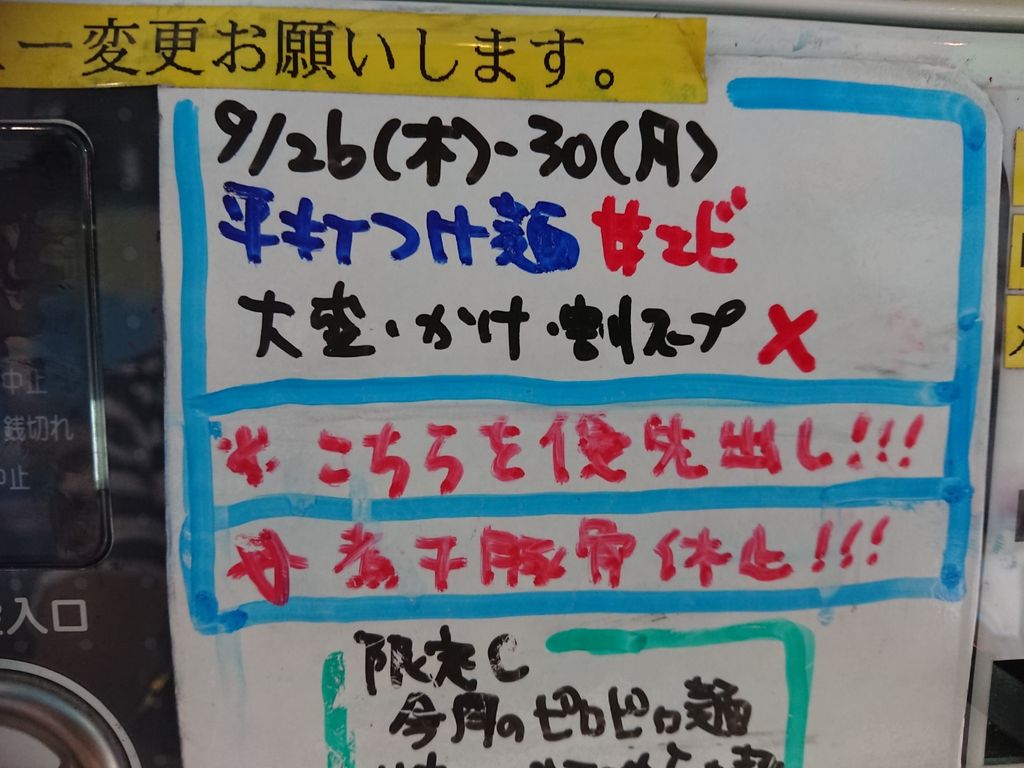 ー変更お願いします。
9/26(木)-30(月)
平打つけ麺 甘エビ
大盛・かけ・割スープ ✕
※こちらを優先出し!!!
煮干豚骨休止!!!
中止
銭切れ
中止
入口
限定C
今月のピロピロ麺